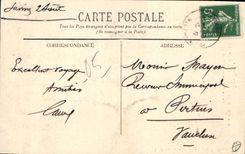 Savins 2 Aout
CARTE POSTALE
Tous les Pays étrangers n'acceptent pas la Correspondance au recto
(Se renseigner à la Poste)
CORRESPONDANCE
ADRESSE
Excellent voyage
Amitiés
Monsieur Mayer
Receveur Municipal
à Pertuis
Vaucluse